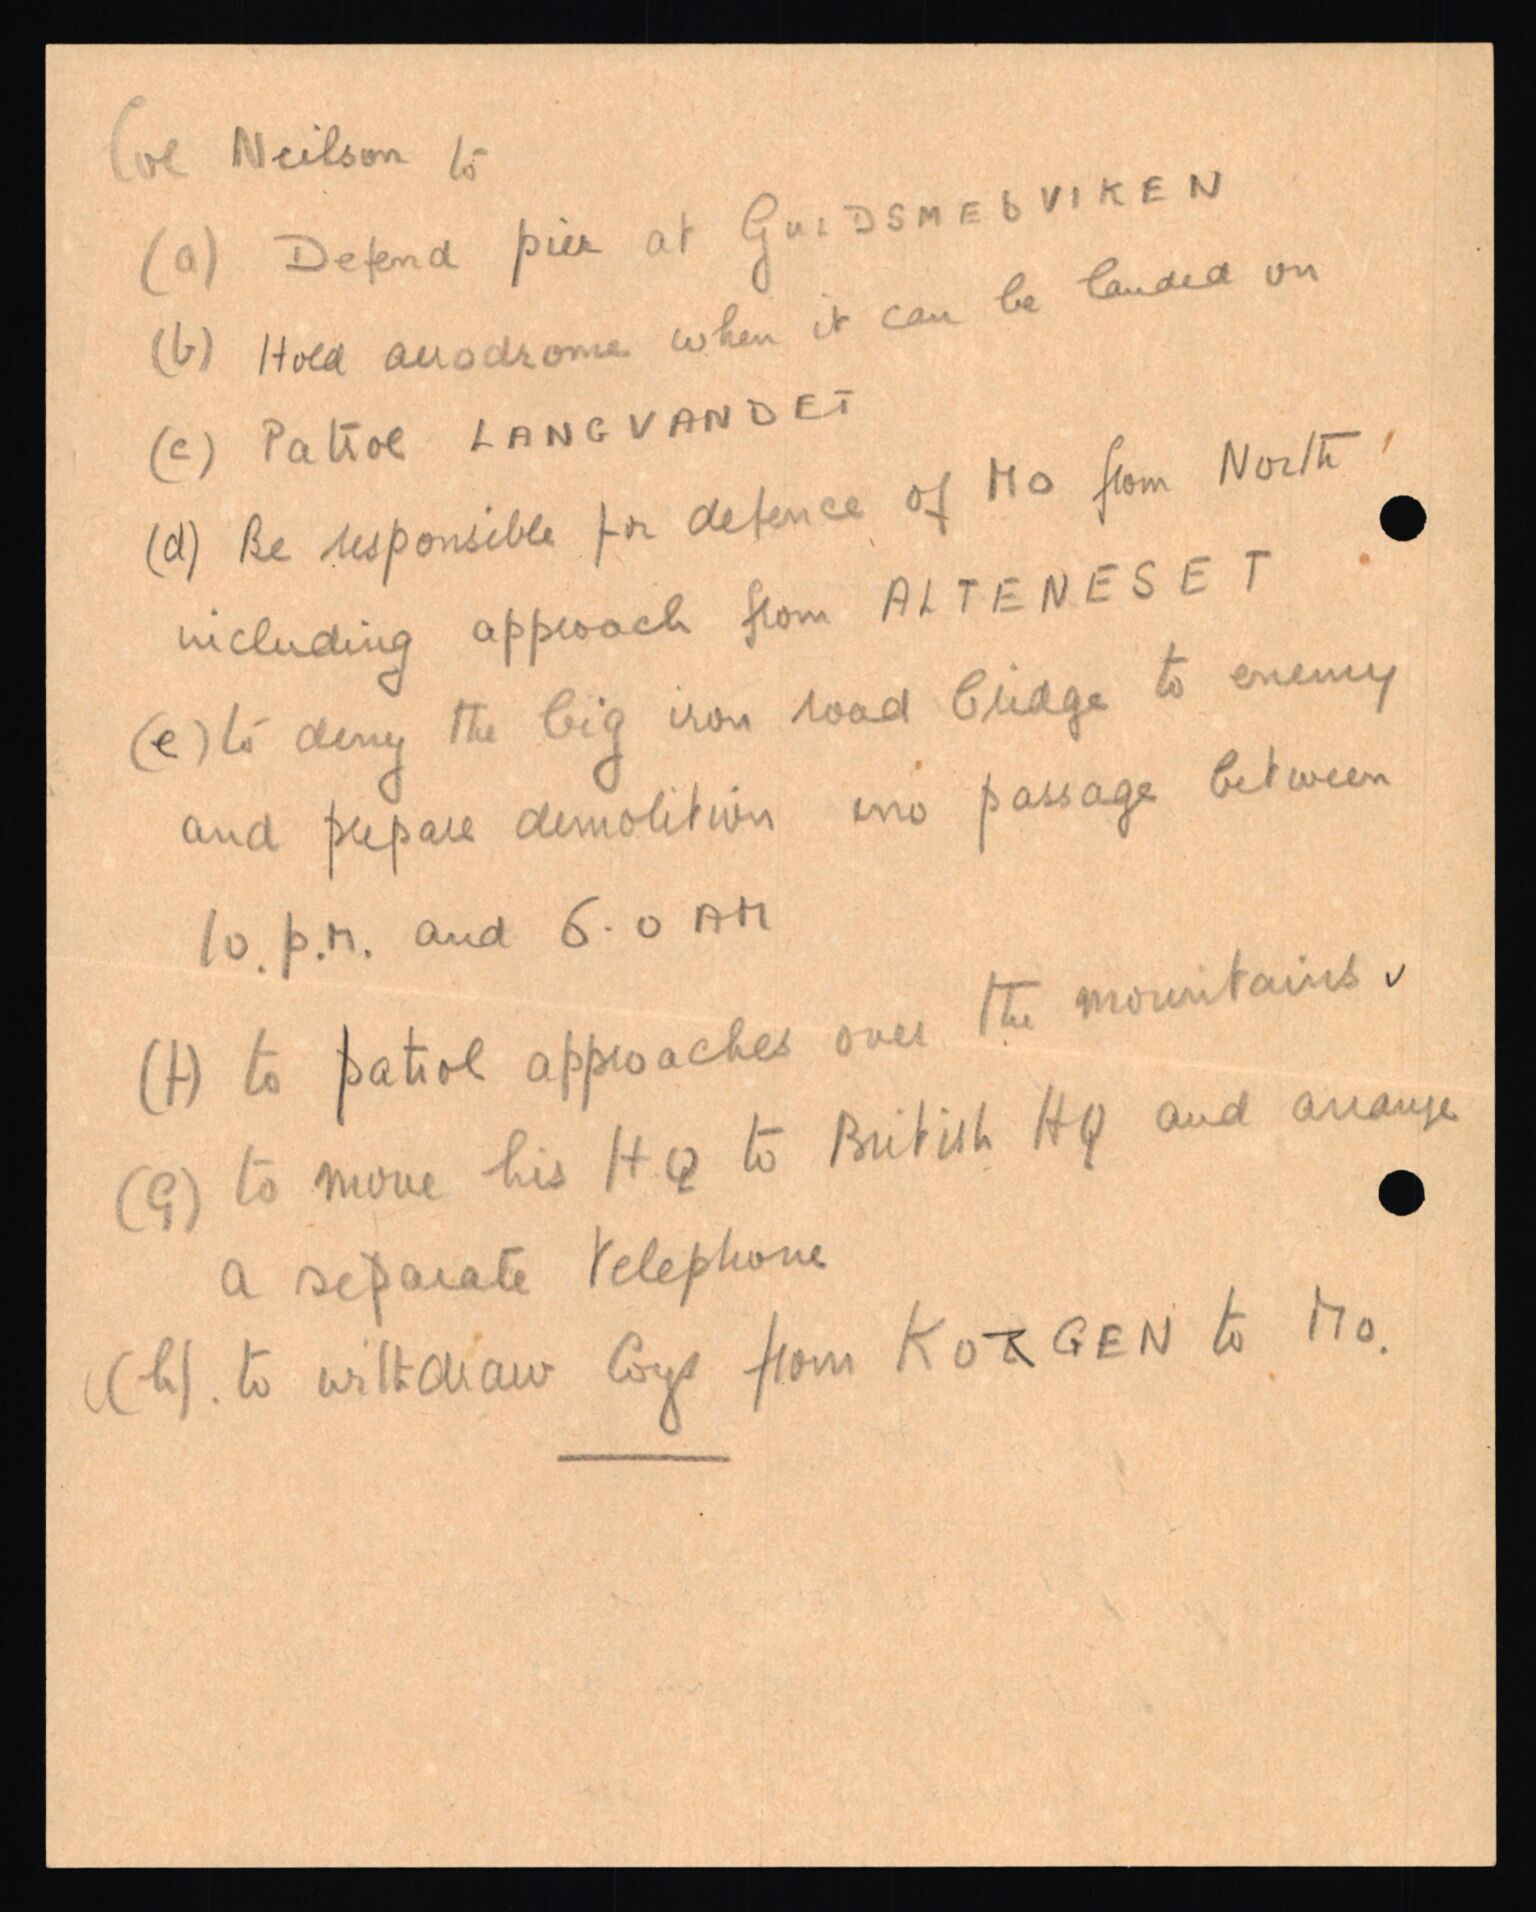 Col Neilson to
(a) Defend pier at GULDSMEDVIKEN
(b) Hold aerodrome when it can be landed on
(c) Patrol LANGVANDET
(d) Be responsible for defence of Mo from North
including approach from ALTENESET
(e) to deny the big iron road bridge to enemy
and prepare demolition no passage between
10. p.m. and 6.0 AM
(f) to patrol approaches over the mountains
(G) to move his HQ to British HQ and arrange
a separate telephone
(h). to withdraw Coys from KORGEN to Mo.